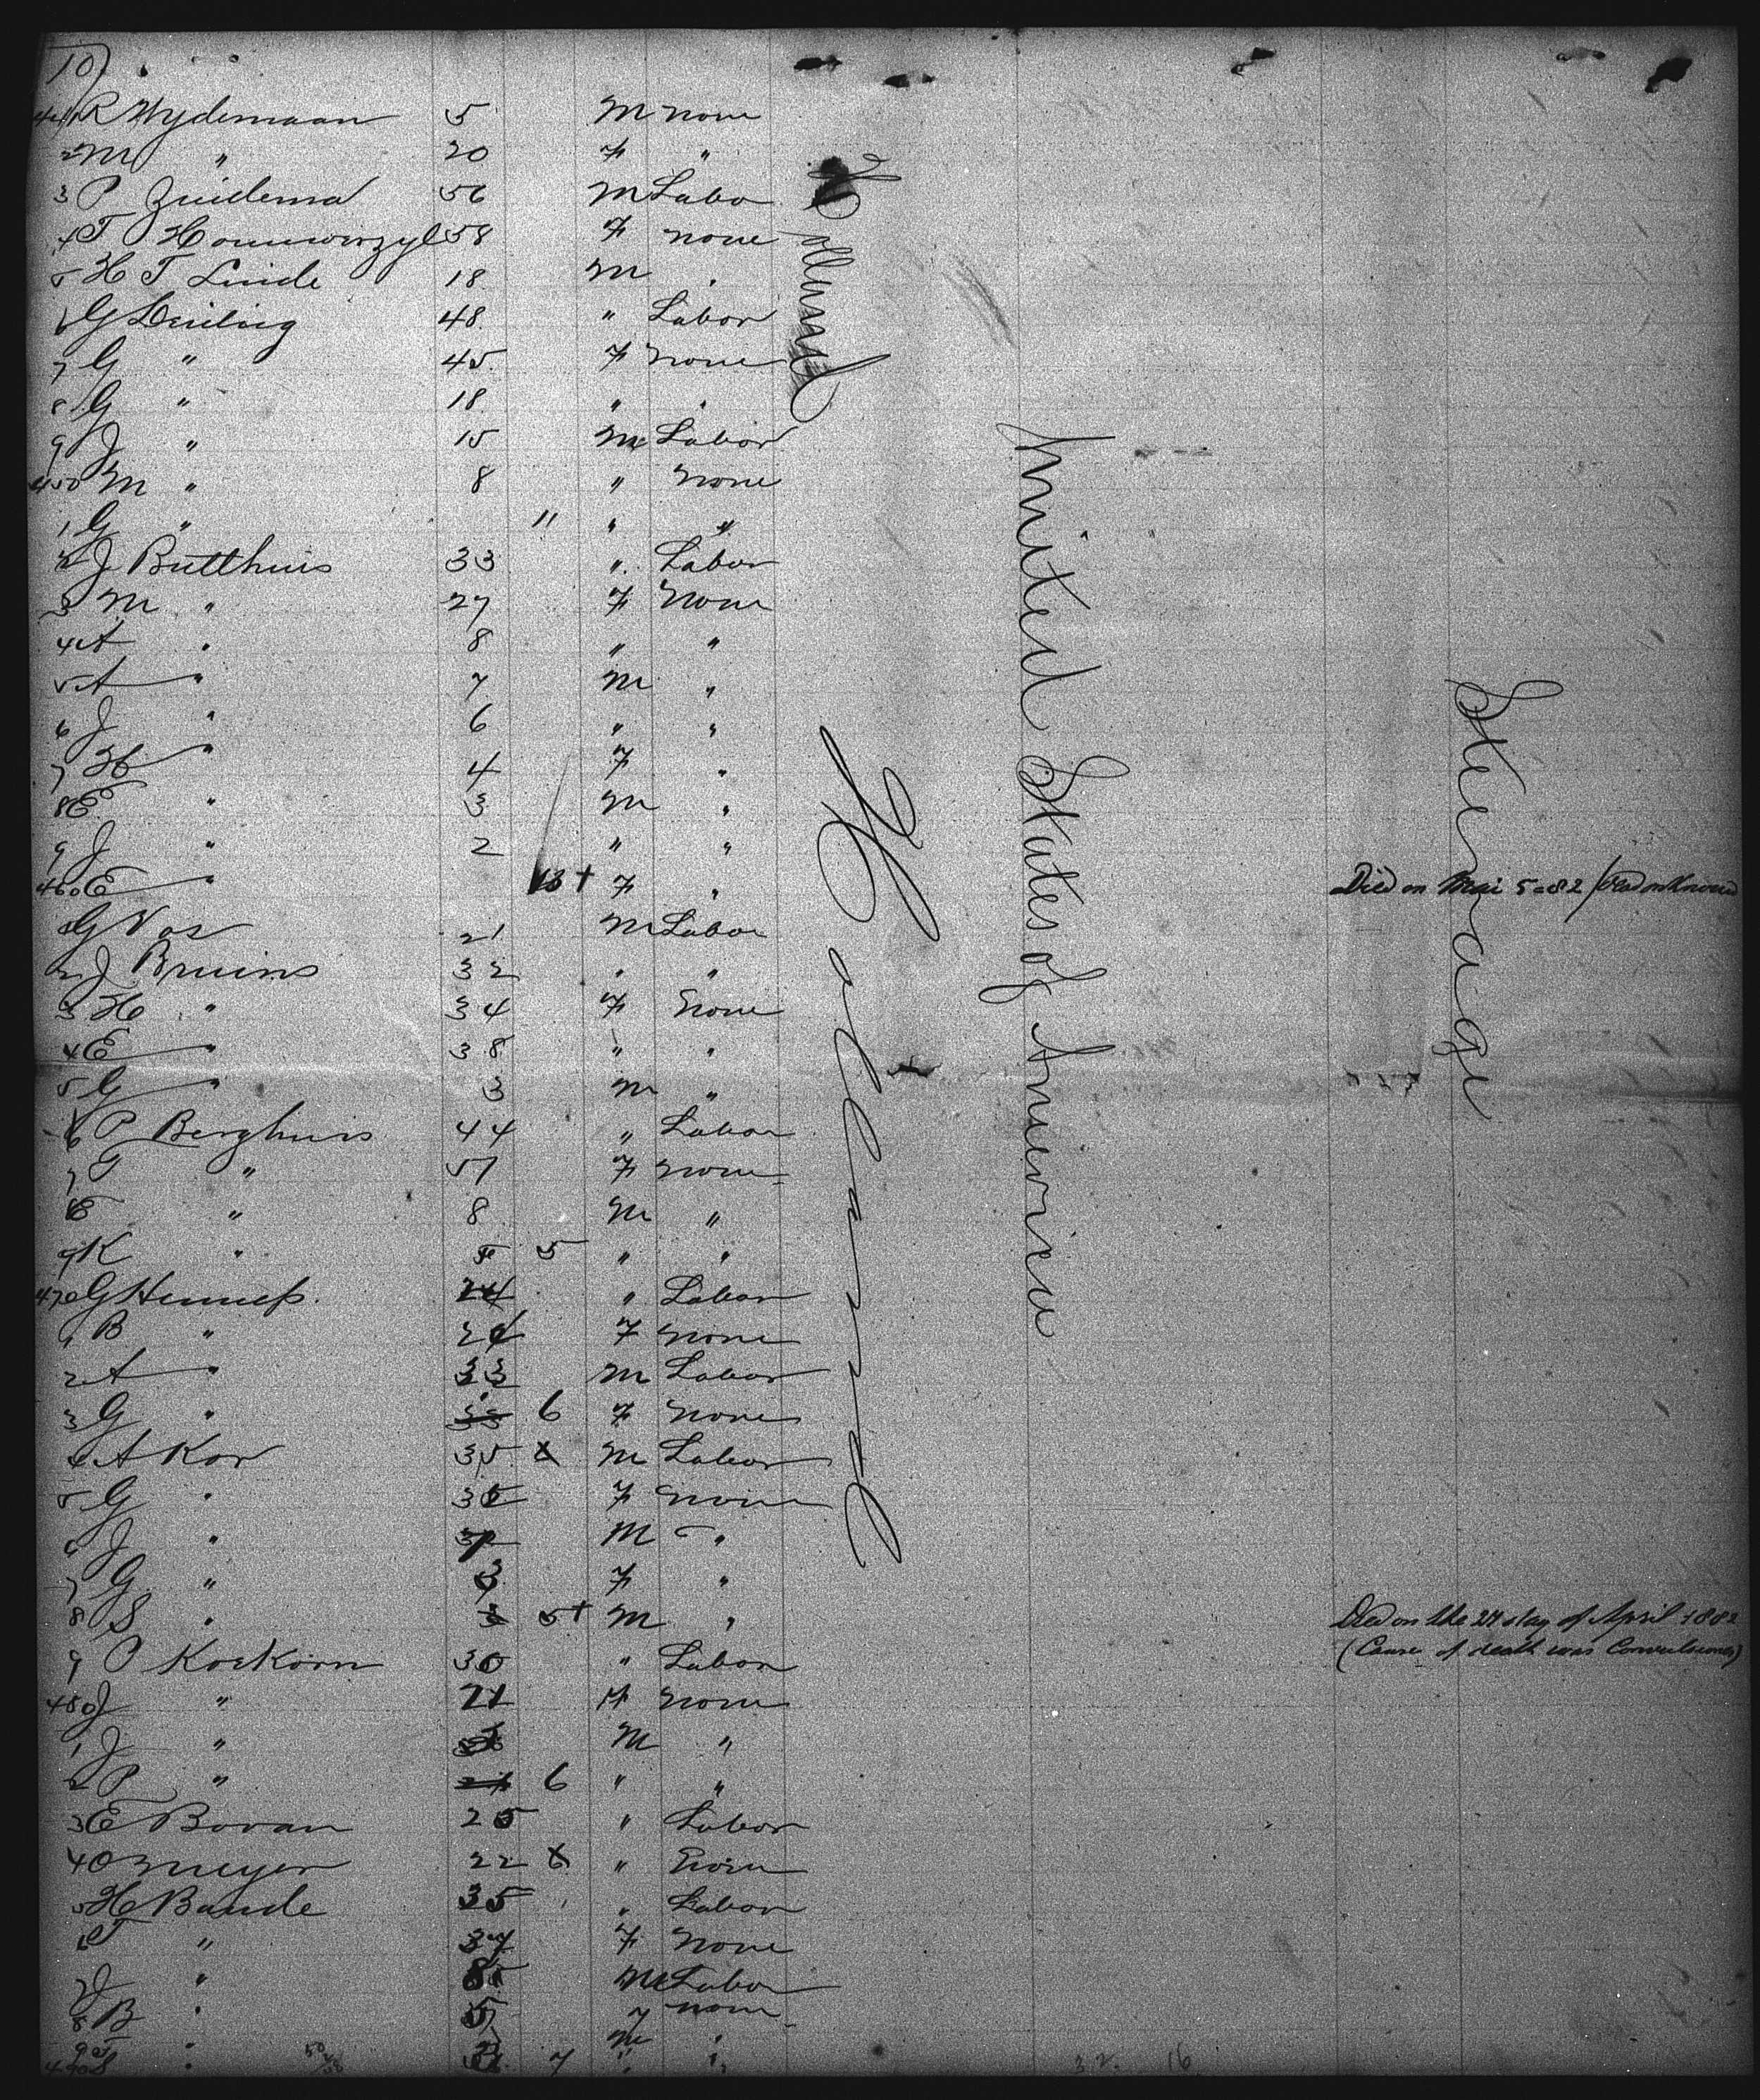 10
441 R Wydemaan 5 M None
2 M " 20 F "
3 P Zuidema 56 M Labo
4 T 58 F None
5 H T Linde 18 M "
6 G 48 " Labor
7 G " 45 F None
8 G " 18 " "
9 J " 15 M Labor
450 M " 8 " None
1 G " 11 " "
2 J Butthuis 33 " Labor
3 M " 27 F None
4 A " 8 " "
5 A " 7 M "
6 J " 6 " "
7 H " 4 F "
8 E " 3 M "
9 J " 2 " "
460 E " + F " Died on Mai 5=82
1 G Vos 21 M Labor
2 J Bruins 32 " "
3 H " 34 F None
4 E " 38 " "
5 G " 3 M "
6 P Berghuis 44 " Labor
7 T " 51 F None
8 E " 8 M "
9 K " 5 " "
470 G Hennep 24 " Labor
1 B " F None
2 A " 33 M Labor
3 G " 6 F None
4 A Kor 35 M Labor
5 G " 35 F None
6 J " M "
7 G " 3 F "
8 S " 5 + M " Died on the 24 day of April 1882
(Cause of death was Convulsions)
9 P Koekorn 30 " Labor
480 J " 21 F None
1 J " M "
2 P " 6 " "
3 E Bovan 25 " Labor
4 O Meyer 22 " None
5 H Baude 35 " Labor
6 T " 37 F None
7 J " M Labor
8 B " 5 F None
9 J " M "
490 S " 7 " "
Holland
Holland
United States of America
Steerage
32. 16